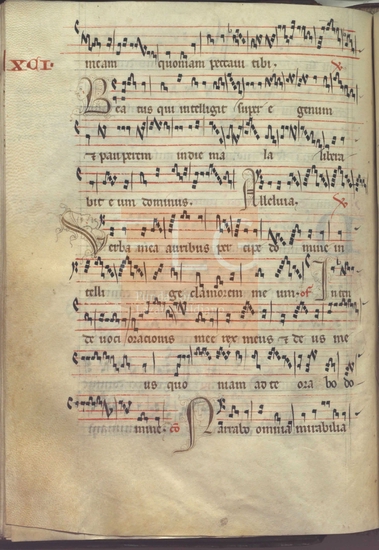 XCI.
meam quoniam peccavi tibi.
Bea tus qui intelligit super e genum
& pauperem in die ma la libera
bit e um dominus. Alleluia.
Verba mea auribus per cipe do mine in
telli ge clamorem me um. of Inten
de voci orationis mee rex meus & de us me
us quo niam ad te ora bo do
mine. co Narrabo omnia mirabilia